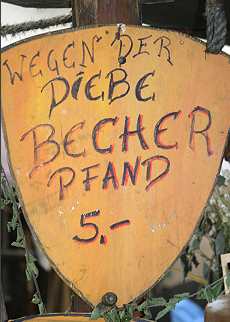 WEGEN DER
DIEBE
BECHER
PFAND
5.-